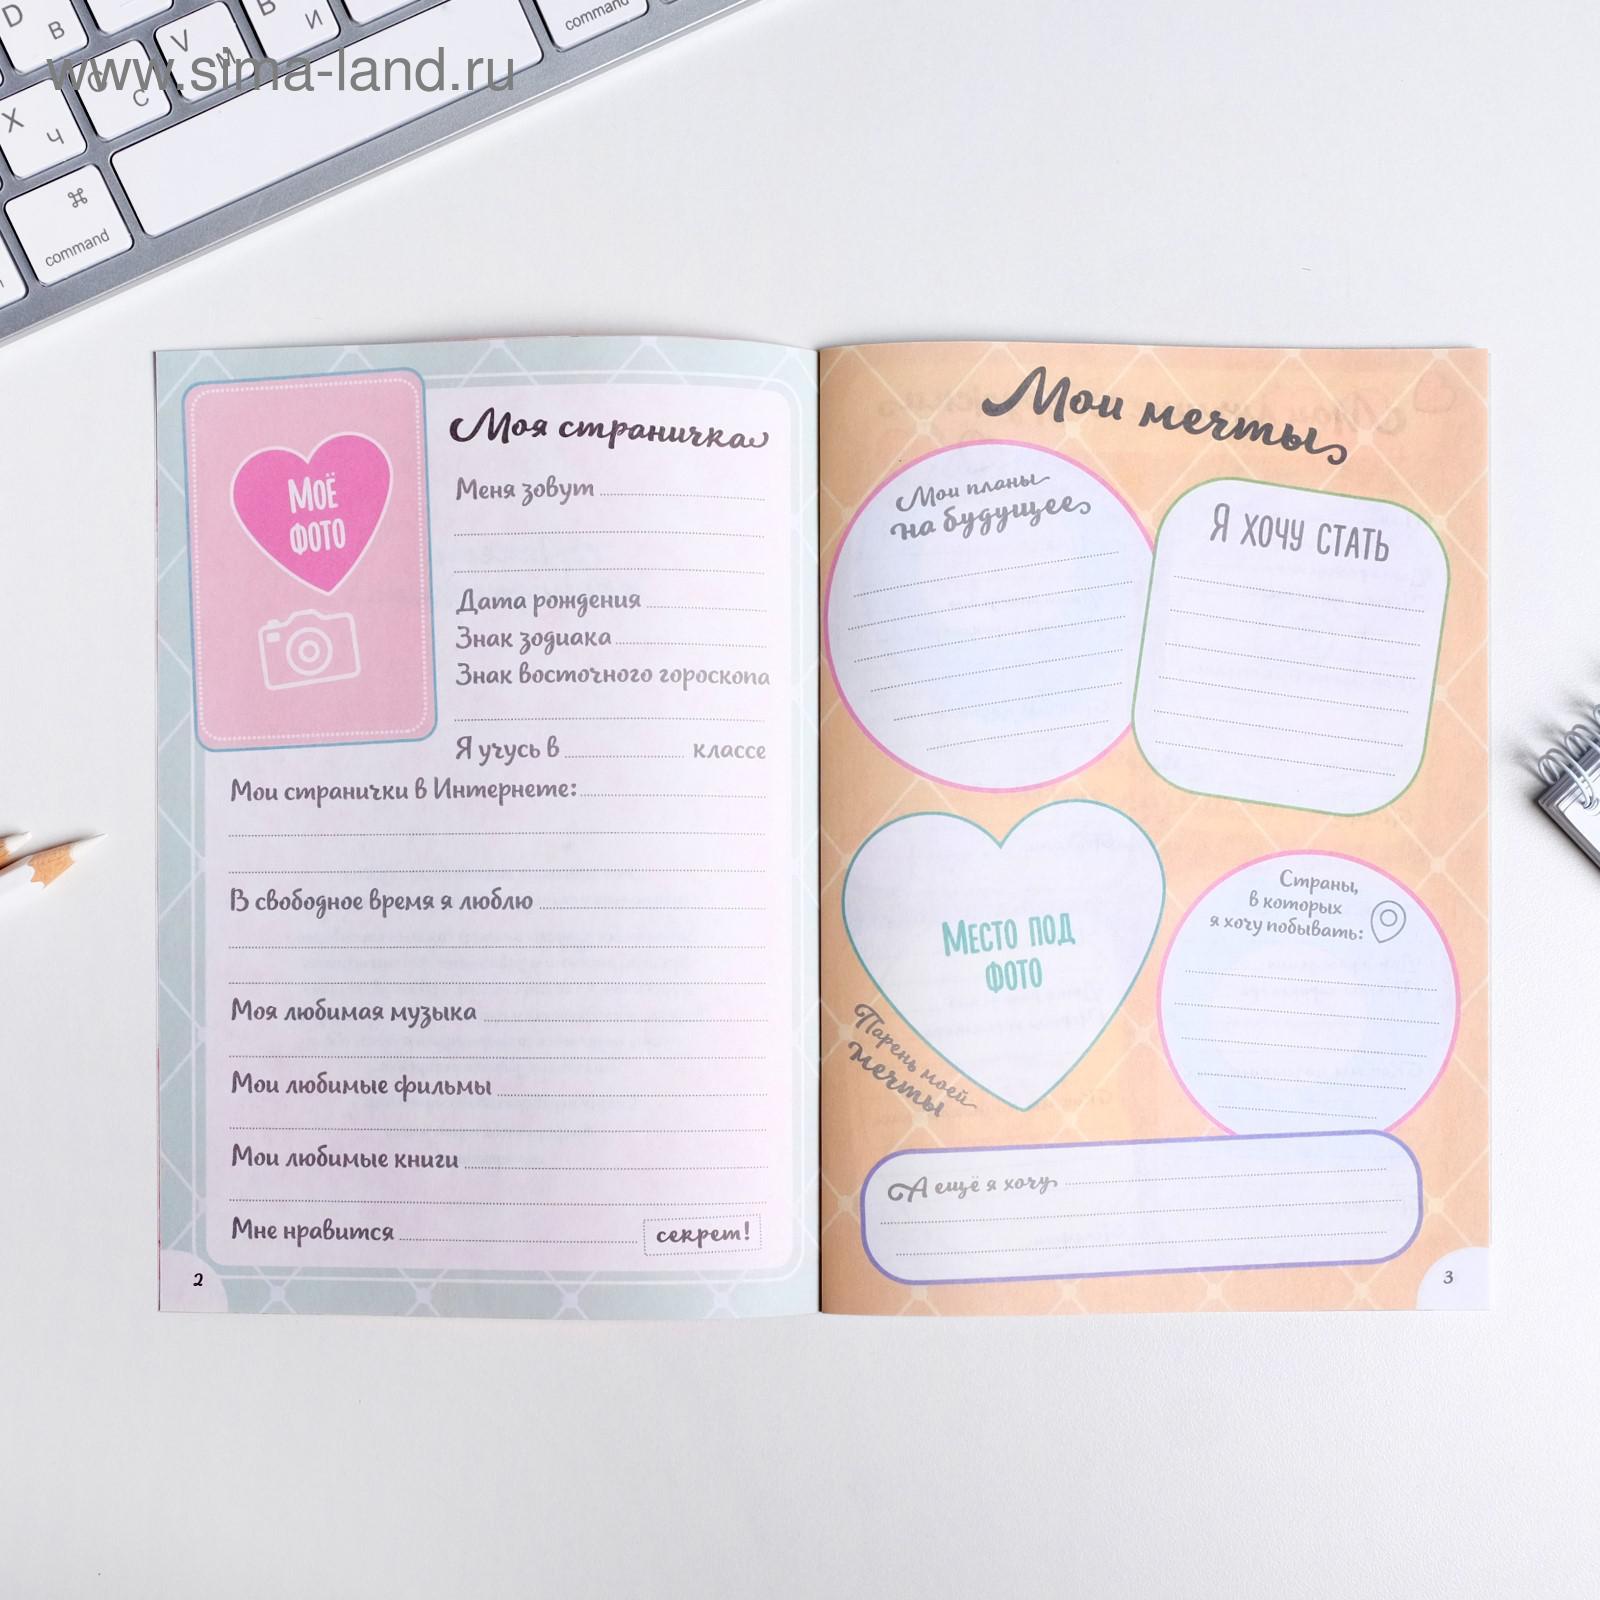 D В
V М
В И
command
www.sima-land.ru
С С
Х Ч
⌘
command
Моя страничка
МОЁ
ФОТО
Меня зовут
Дата рождения
Знак зодиака
Знак восточного гороскопа
Я учусь в классе
Мои странички в Интернете:
В свободное время я люблю
Моя любимая музыка
Мои любимые фильмы
Мои любимые книги
Мне нравится секрет!
2
Мои мечты
Мои планы
на будущее
Я ХОЧУ СТАТЬ
МЕСТО ПОД
ФОТО
Парень моей
мечты
Страны,
в которых
я хочу побывать:
А ещё я хочу
3